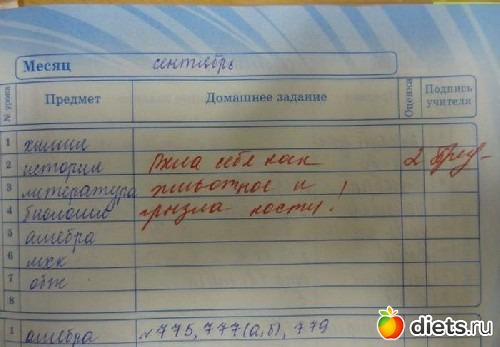 Месяц сентябрь
№ урока Предмет Домашнее задание Оценка Подпись учителя
1 химия
2 история Вела себя как 2
3 литература животное и
4 биология грызла кости!
5 алгебра
6 мхк
7 обж
8
1 алгебра №775, 777(а,б), 779
diets.ru